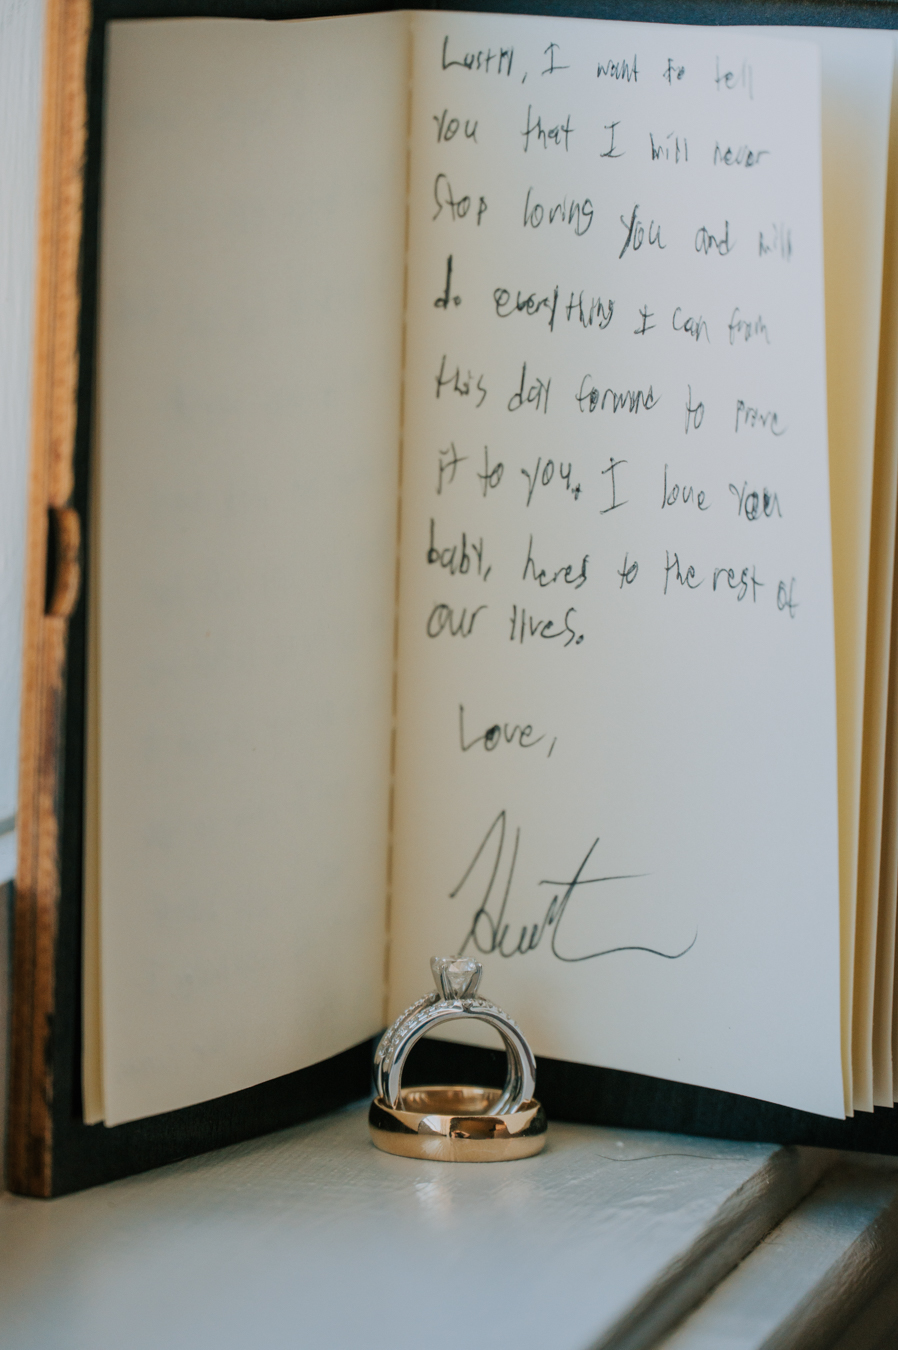 Lastly, I want to tell
you that I will never
Stop loving you and will
do everything I can from
this day forward to prove
it to you. I love you
baby, heres to the rest of
our lives.
Love,